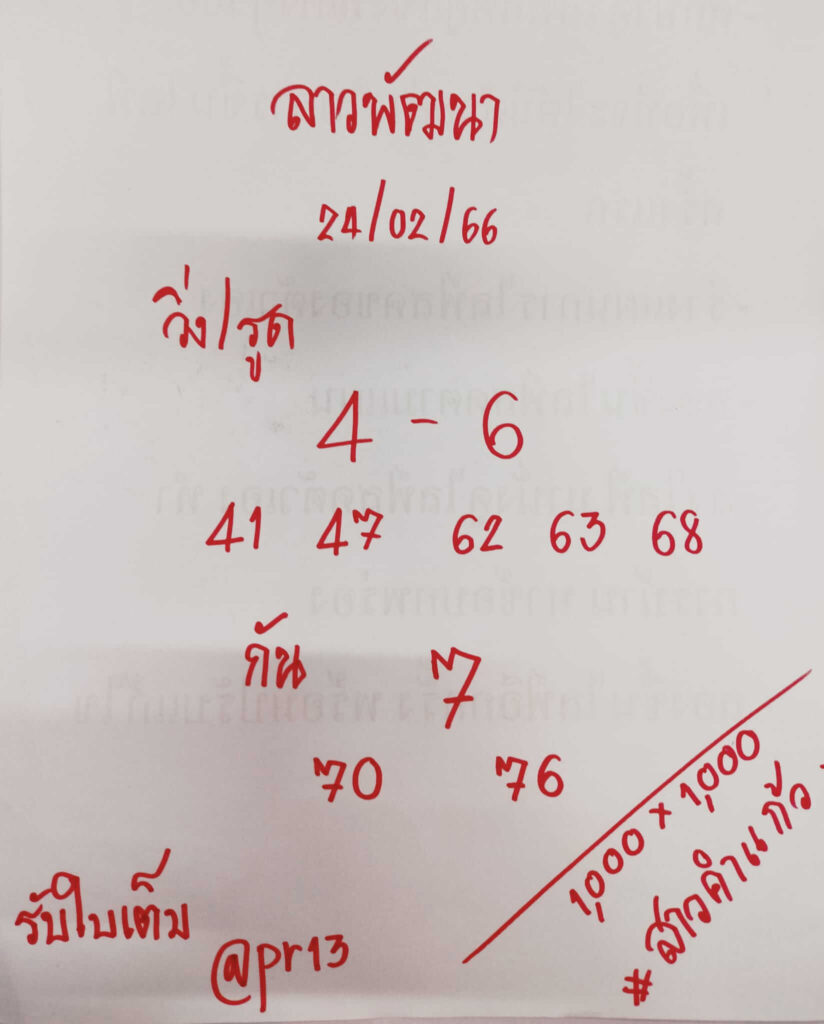 ลาวพัฒนา
24/02/66
วิ่ง/รูด
4 - 6
41 47 62 63 68
กัน 7
70 76
1,000 x 1,000
#สาวคำแก้ว
รับใบเต็ม
@pr13